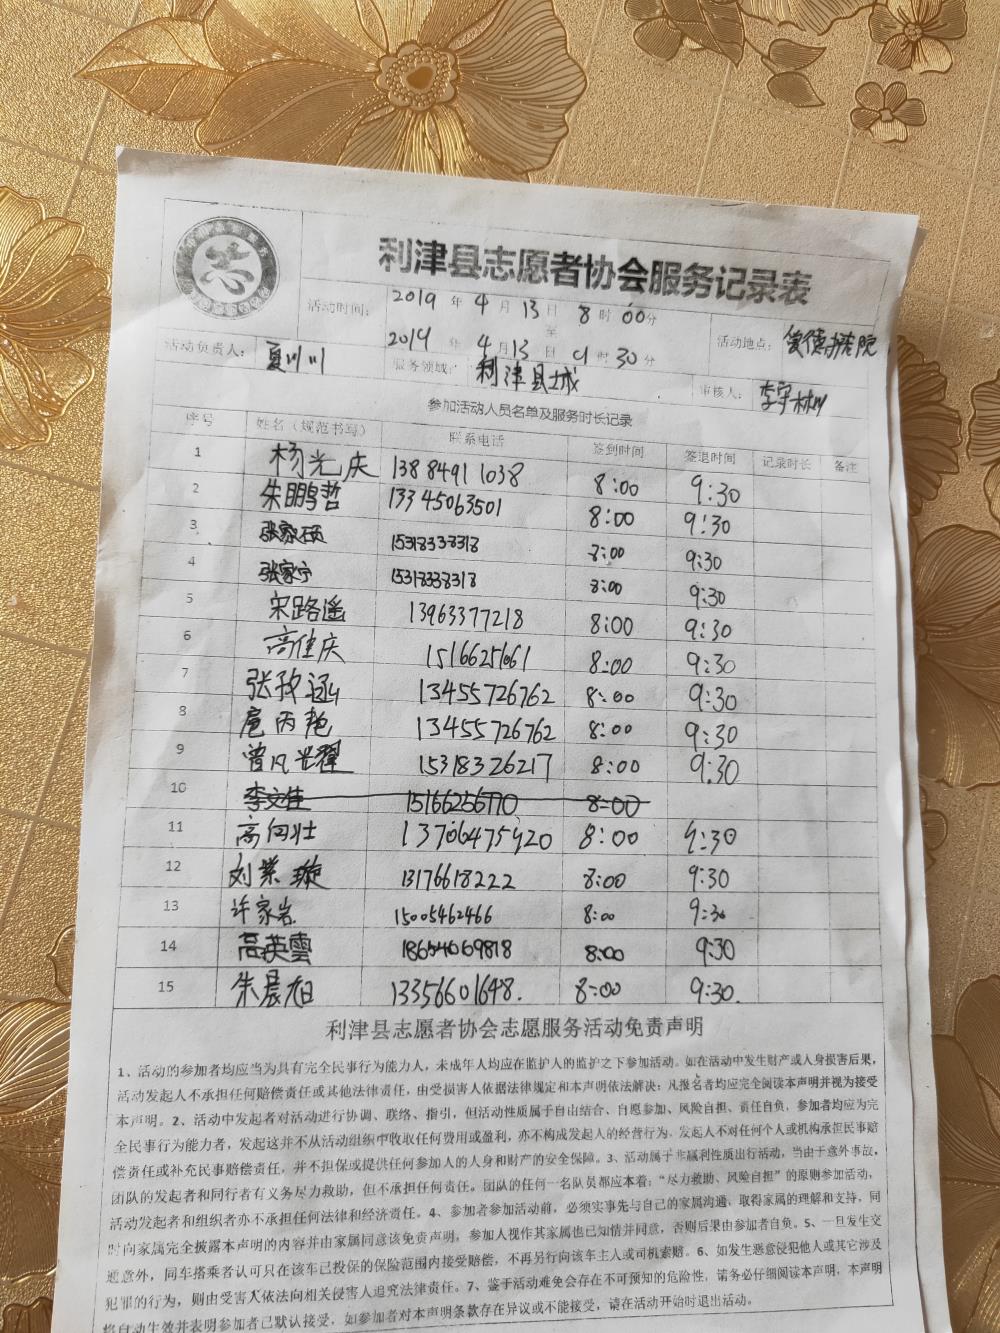 利津县志愿者协会服务记录表
活动时间： 2019 年 4 月 13 日 8 时 00 分
至
2019 年 4 月 13 日 9 时 30 分
活动地点：
活动负责人： 夏川川
服务领域： 利津县城
审核人：
参加活动人员名单及服务时长记录
序号 姓名（规范书写） 联系电话 签到时间 签退时间 记录时长 备注
1 杨光庆 13884911038 8:00 9:30
2 朱鹏哲 13345063501 8:00 9:30
3 张家硕 15318338318 8:00 9:30
4 张家宁 15318338318 8:00 9:30
5 宋路遥 13963377218 8:00 9:30
6 高佳庆 8:00 9:30
7 张孜涵 13455726762 8:00 9:30
8 扈丙艳 13455726762 8:00 9:30
9 曾凡光耀 15318326217 8:00 9:30
10 李文佳 15166256770 8:00
11 高向壮 13706475920 8:00 9:30
12 刘紫璇 13176618222 8:00 9:30
13 许家岩 15005462466 8:00 9:30
14 高英雲 18654069818 8:00 9:30
15 朱晨旭 13356601648. 8:00 9:30.
利津县志愿者协会志愿服务活动免责声明
1、活动的参加者均应当为具有完全民事行为能力人，未成年人均应在监护人的监护之下参加活动。如在活动中发生财产或人身损害后果，
活动发起人不承担任何赔偿责任或其他法律责任，由受损害人依据法律规定和本声明依法解决；凡报名者均应完全阅读本声明并视为接受
本声明。2、活动中发起者对活动进行协调、联络、指引，但活动性质属于自由结合、自愿参加、风险自担、责任自负，参加者均应为完
全民事行为能力者，发起这并不从活动组织中收取任何费用或盈利，亦不构成发起人的经营行为，发起人不对任何个人或机构承担民事赔
偿责任或补充民事赔偿责任，并不担保或提供任何参加人的人身和财产的安全保障。3、活动属于非赢利性质出行活动，当由于意外事故，
团队的发起者和同行者有义务尽力救助，但不承担任何责任。团队的任何一名队员都应本着：“尽力救助、风险自担”的原则参加活动，
活动发起者和组织者亦不承担任何法律和经济责任。4、参加者参加活动前，必须实事先与自己的家属沟通，取得家属的理解和支持，同
时向家属完全披露本声明的内容并由家属同意该免责声明，参加人视作其家属也已知情并同意，否则后果由参加者自负。5、一旦发生交
通意外，同车搭乘者认可只在该车已投保的保险范围内接受赔偿，不再另行向该车主人或司机索赔。6、如发生恶意侵犯他人或其它涉及
犯罪的行为，则由受害人依法向相关侵害人追究法律责任。7、鉴于活动难免会存在不可预知的危险性，请务必仔细阅读本声明，本声明
将自动生效并表明参加者已默认接受，如参加者对本声明条款存在异议或不能接受，请在活动开始时退出活动。